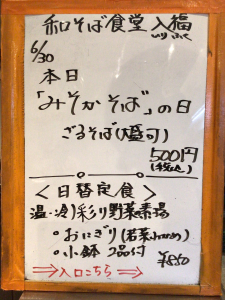 和そば食堂 入福
いりふく
6/30
本日
「みそかそば」の日
ざるそば(大盛可)
500円
(税込)
<日替定食>
温・冷 彩り野菜蕎場
。おにぎり(若菜
。小鉢 2品付
¥850
⇒入口こちら⇒